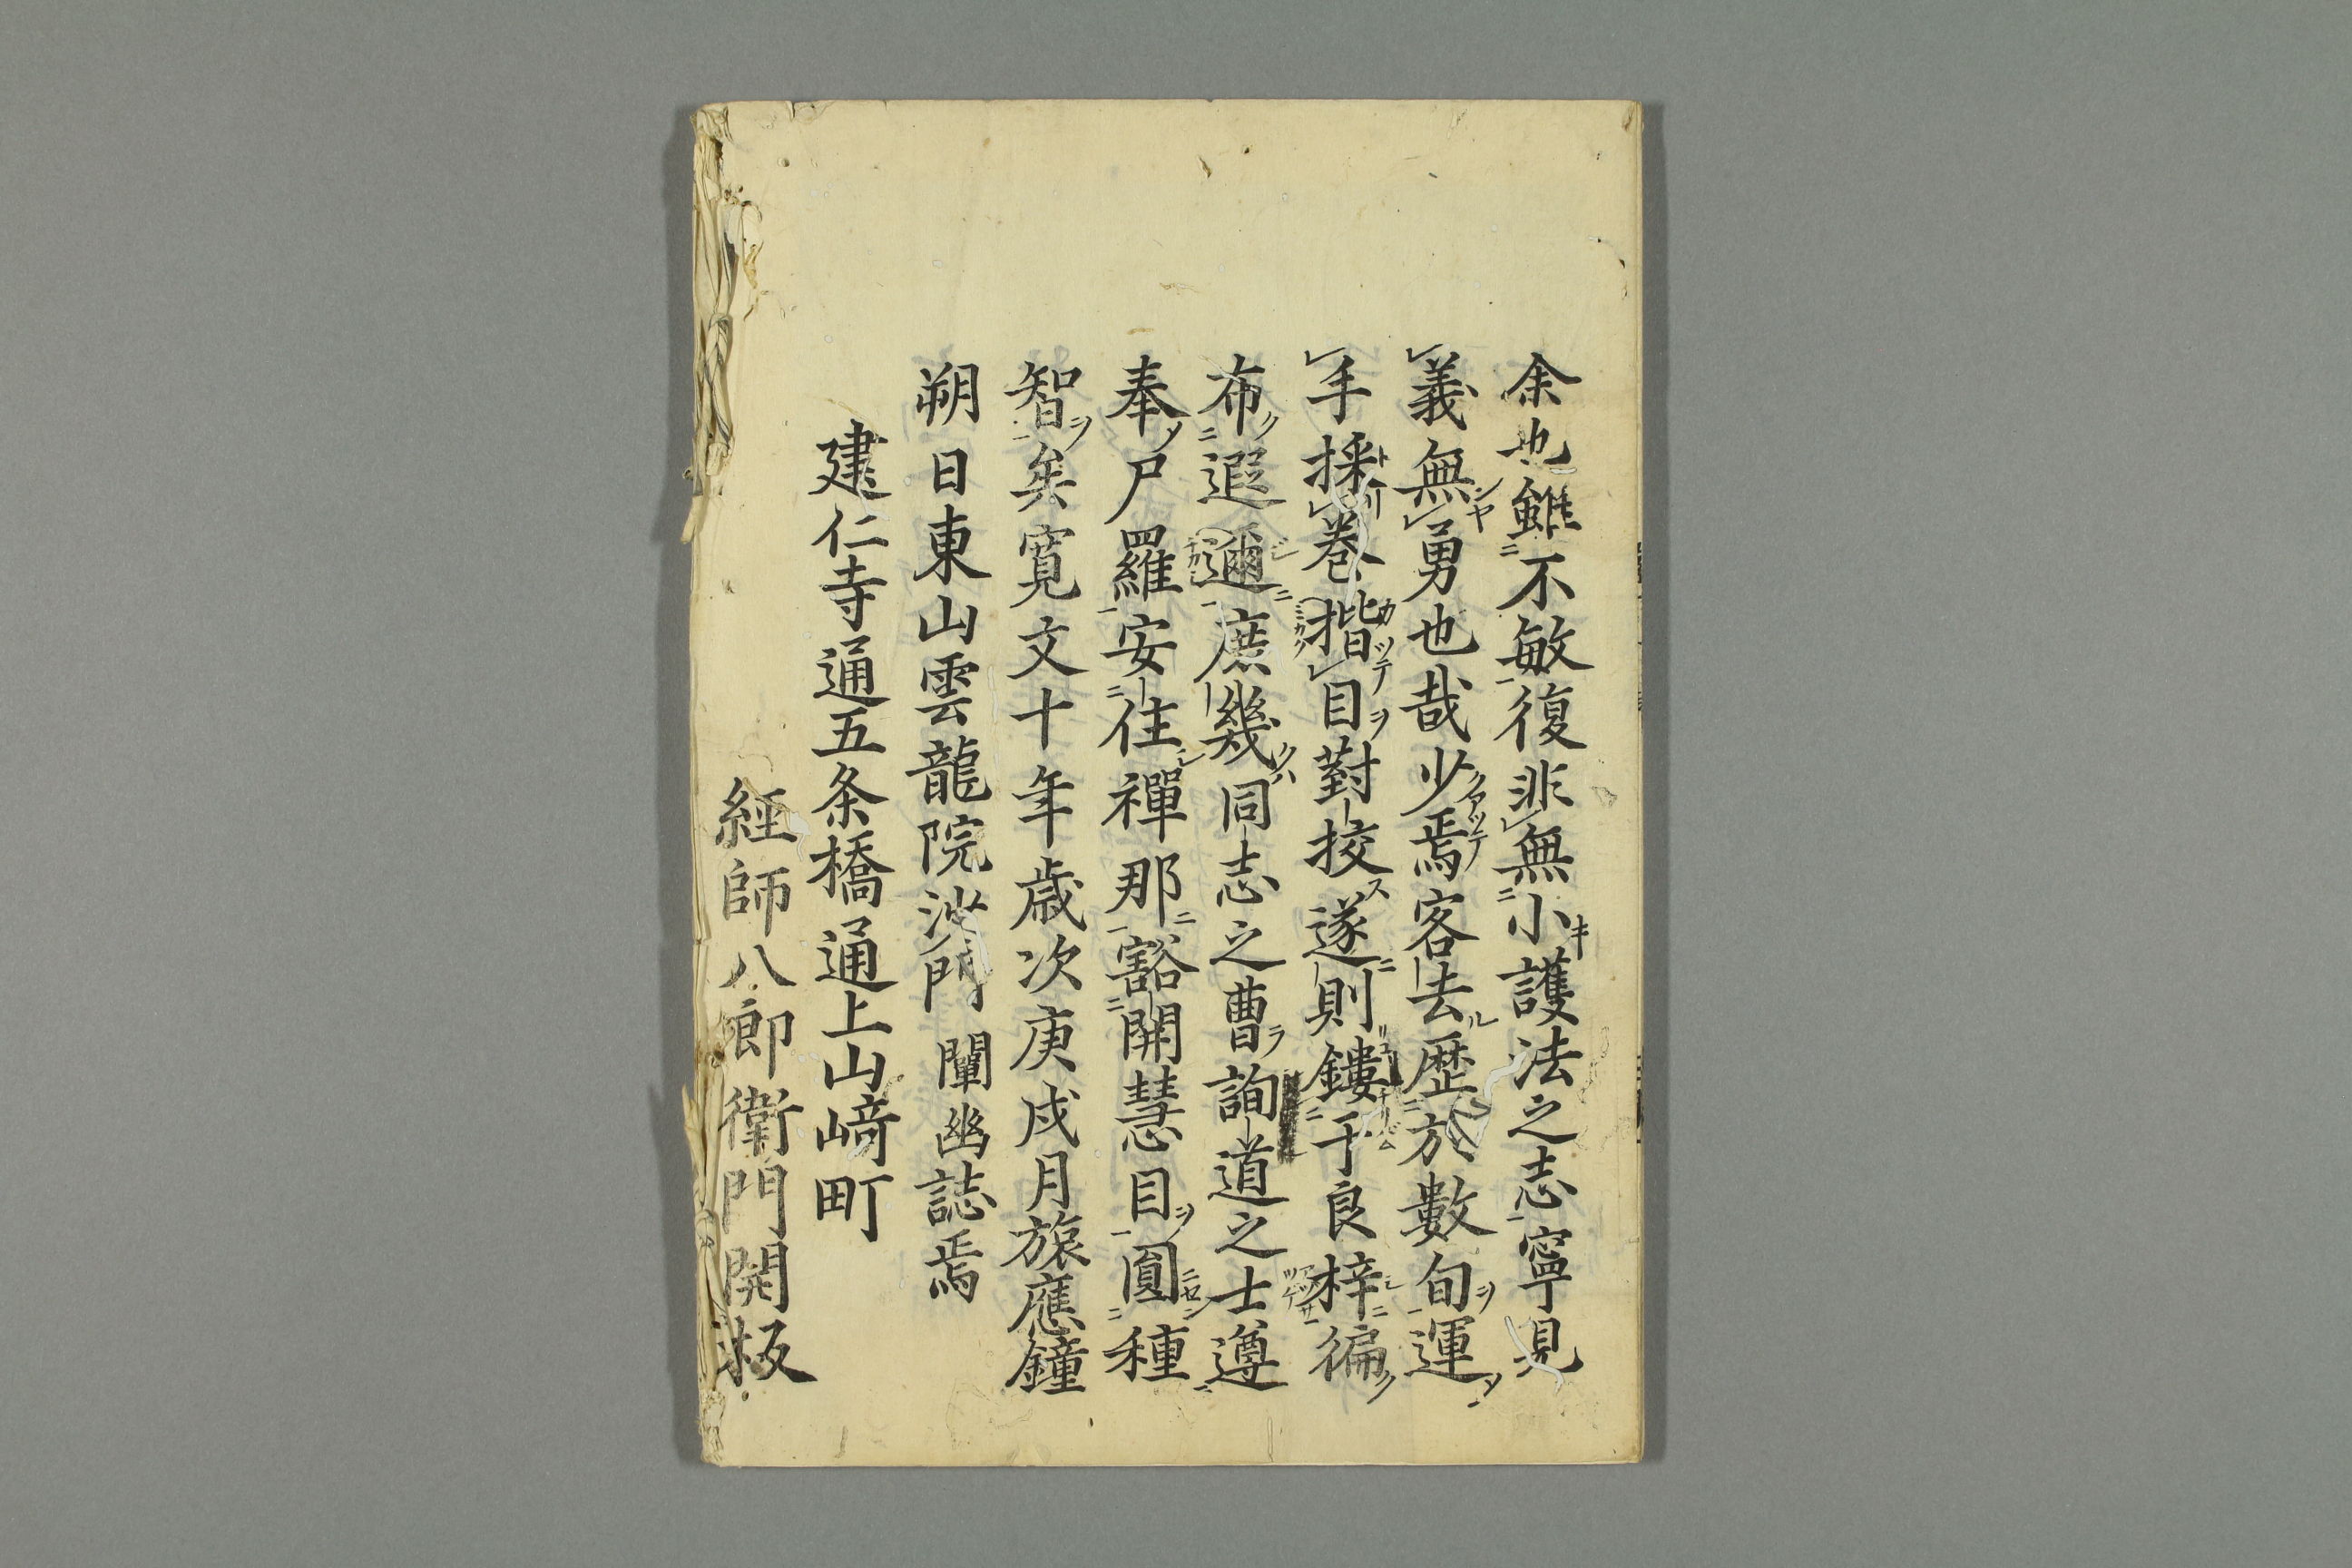 余也雖不敏復非無小護法之志寧見
義無勇也哉少焉客去歴於數旬運
手採巻揩目對挍遂則鏤于良梓徧
布遐邇庶幾同志之曹詢道之士遵
奉尸羅安住禪那豁開慧目圓種
智矣寛文十年歳次庚戌月旅應鐘
朔日東山雲龍院沙門闡幽誌焉
建仁寺通五条橋通上山﨑町
経師八郎衛門開板